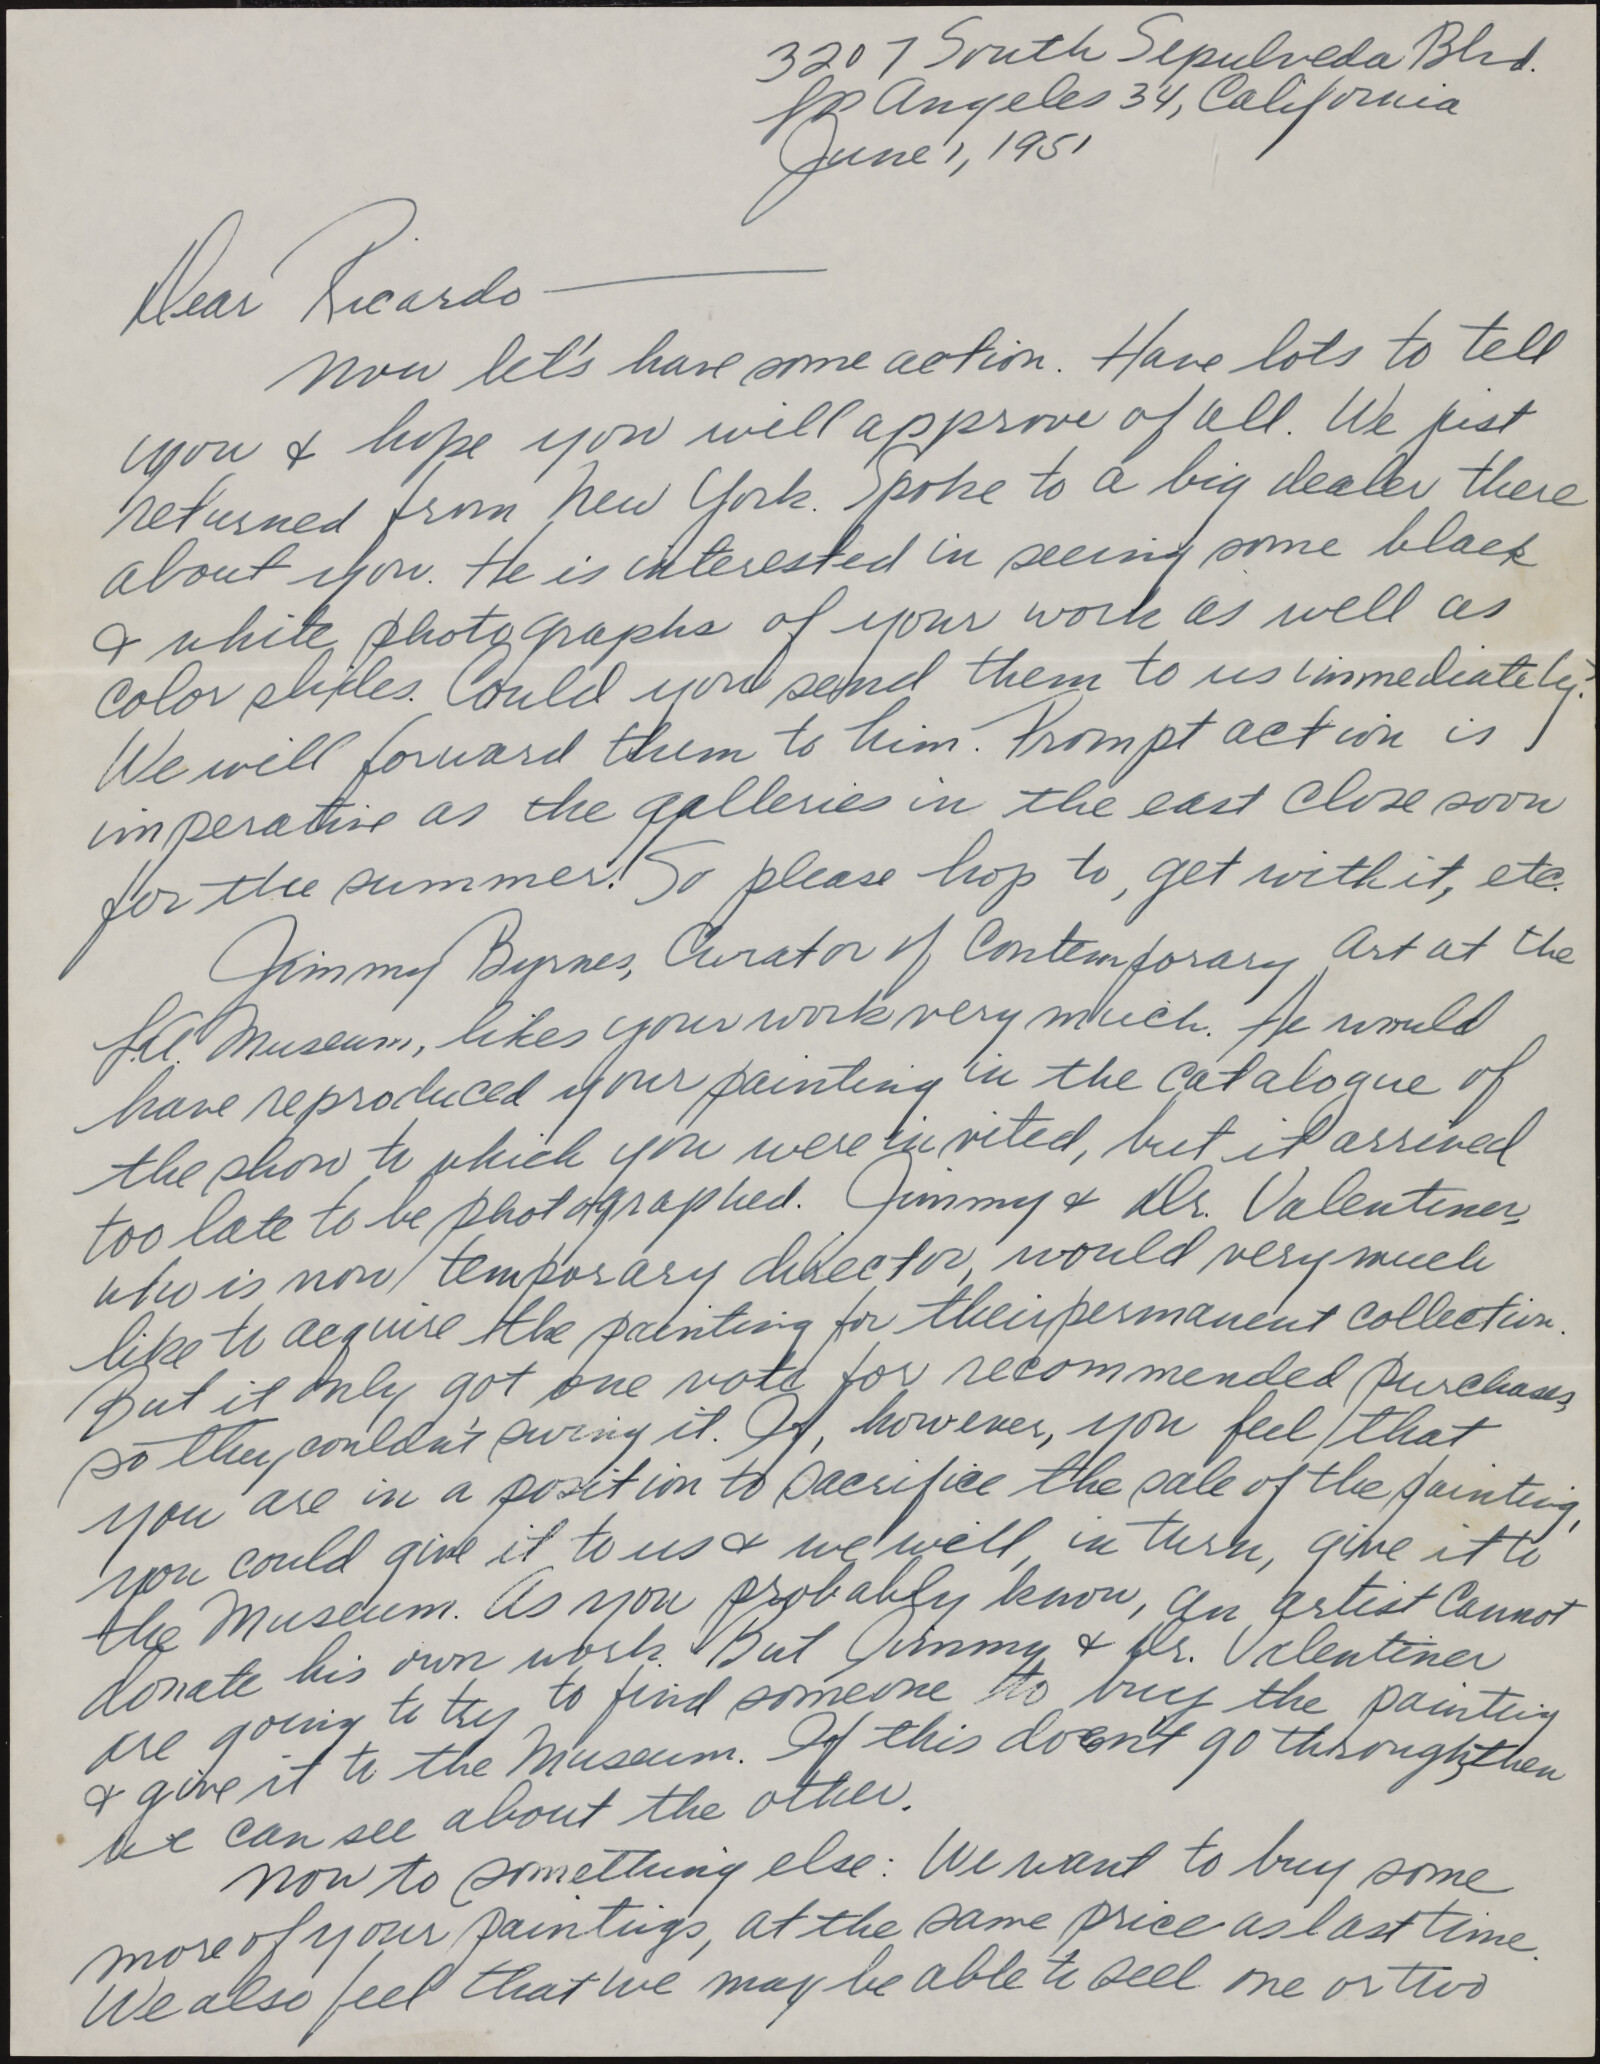 3207 South Sepulveda Blvd.
Los Angeles 34, California
June 1, 1951
Dear Ricardo —
Now let's have some action. Have lots to tell
you & hope you will approve of all. We just
returned from New York. Spoke to a big dealer there
about you. He is interested in seeing some black
& white photographs of your work as well as
color slides. Could you send them to us immediately?
We will forward them to him. Prompt action is
imperative as the galleries in the east close soon
for the summer! So please hop to, get with it, etc.
Jimmy Byrnes, Curator of Contemporary Art at the
L.A. Museum, likes your work very much. He would
have reproduced your painting in the catalogue of
the show to which you were invited, but it arrived
too late to be photographed. Jimmy & Dr. Valentiner,
who is now temporary director, would very much
like to acquire the painting for their permanent collection.
But it only got one vote for recommended purchases,
so they couldn't swing it. If, however, you feel that
you are in a position to sacrifice the sale of the painting,
you could give it to us & we will, in turn, give it to
the Museum. As you probably know, an artist cannot
donate his own work. But Jimmy & Dr. Valentiner
are going to try to find someone to buy the painting
& give it to the Museum. If this doesn't go through, then
we can see about the other.
Now to something else: We want to buy some
more of your paintings, at the same price as last time.
We also feel that we may be able to sell one or two